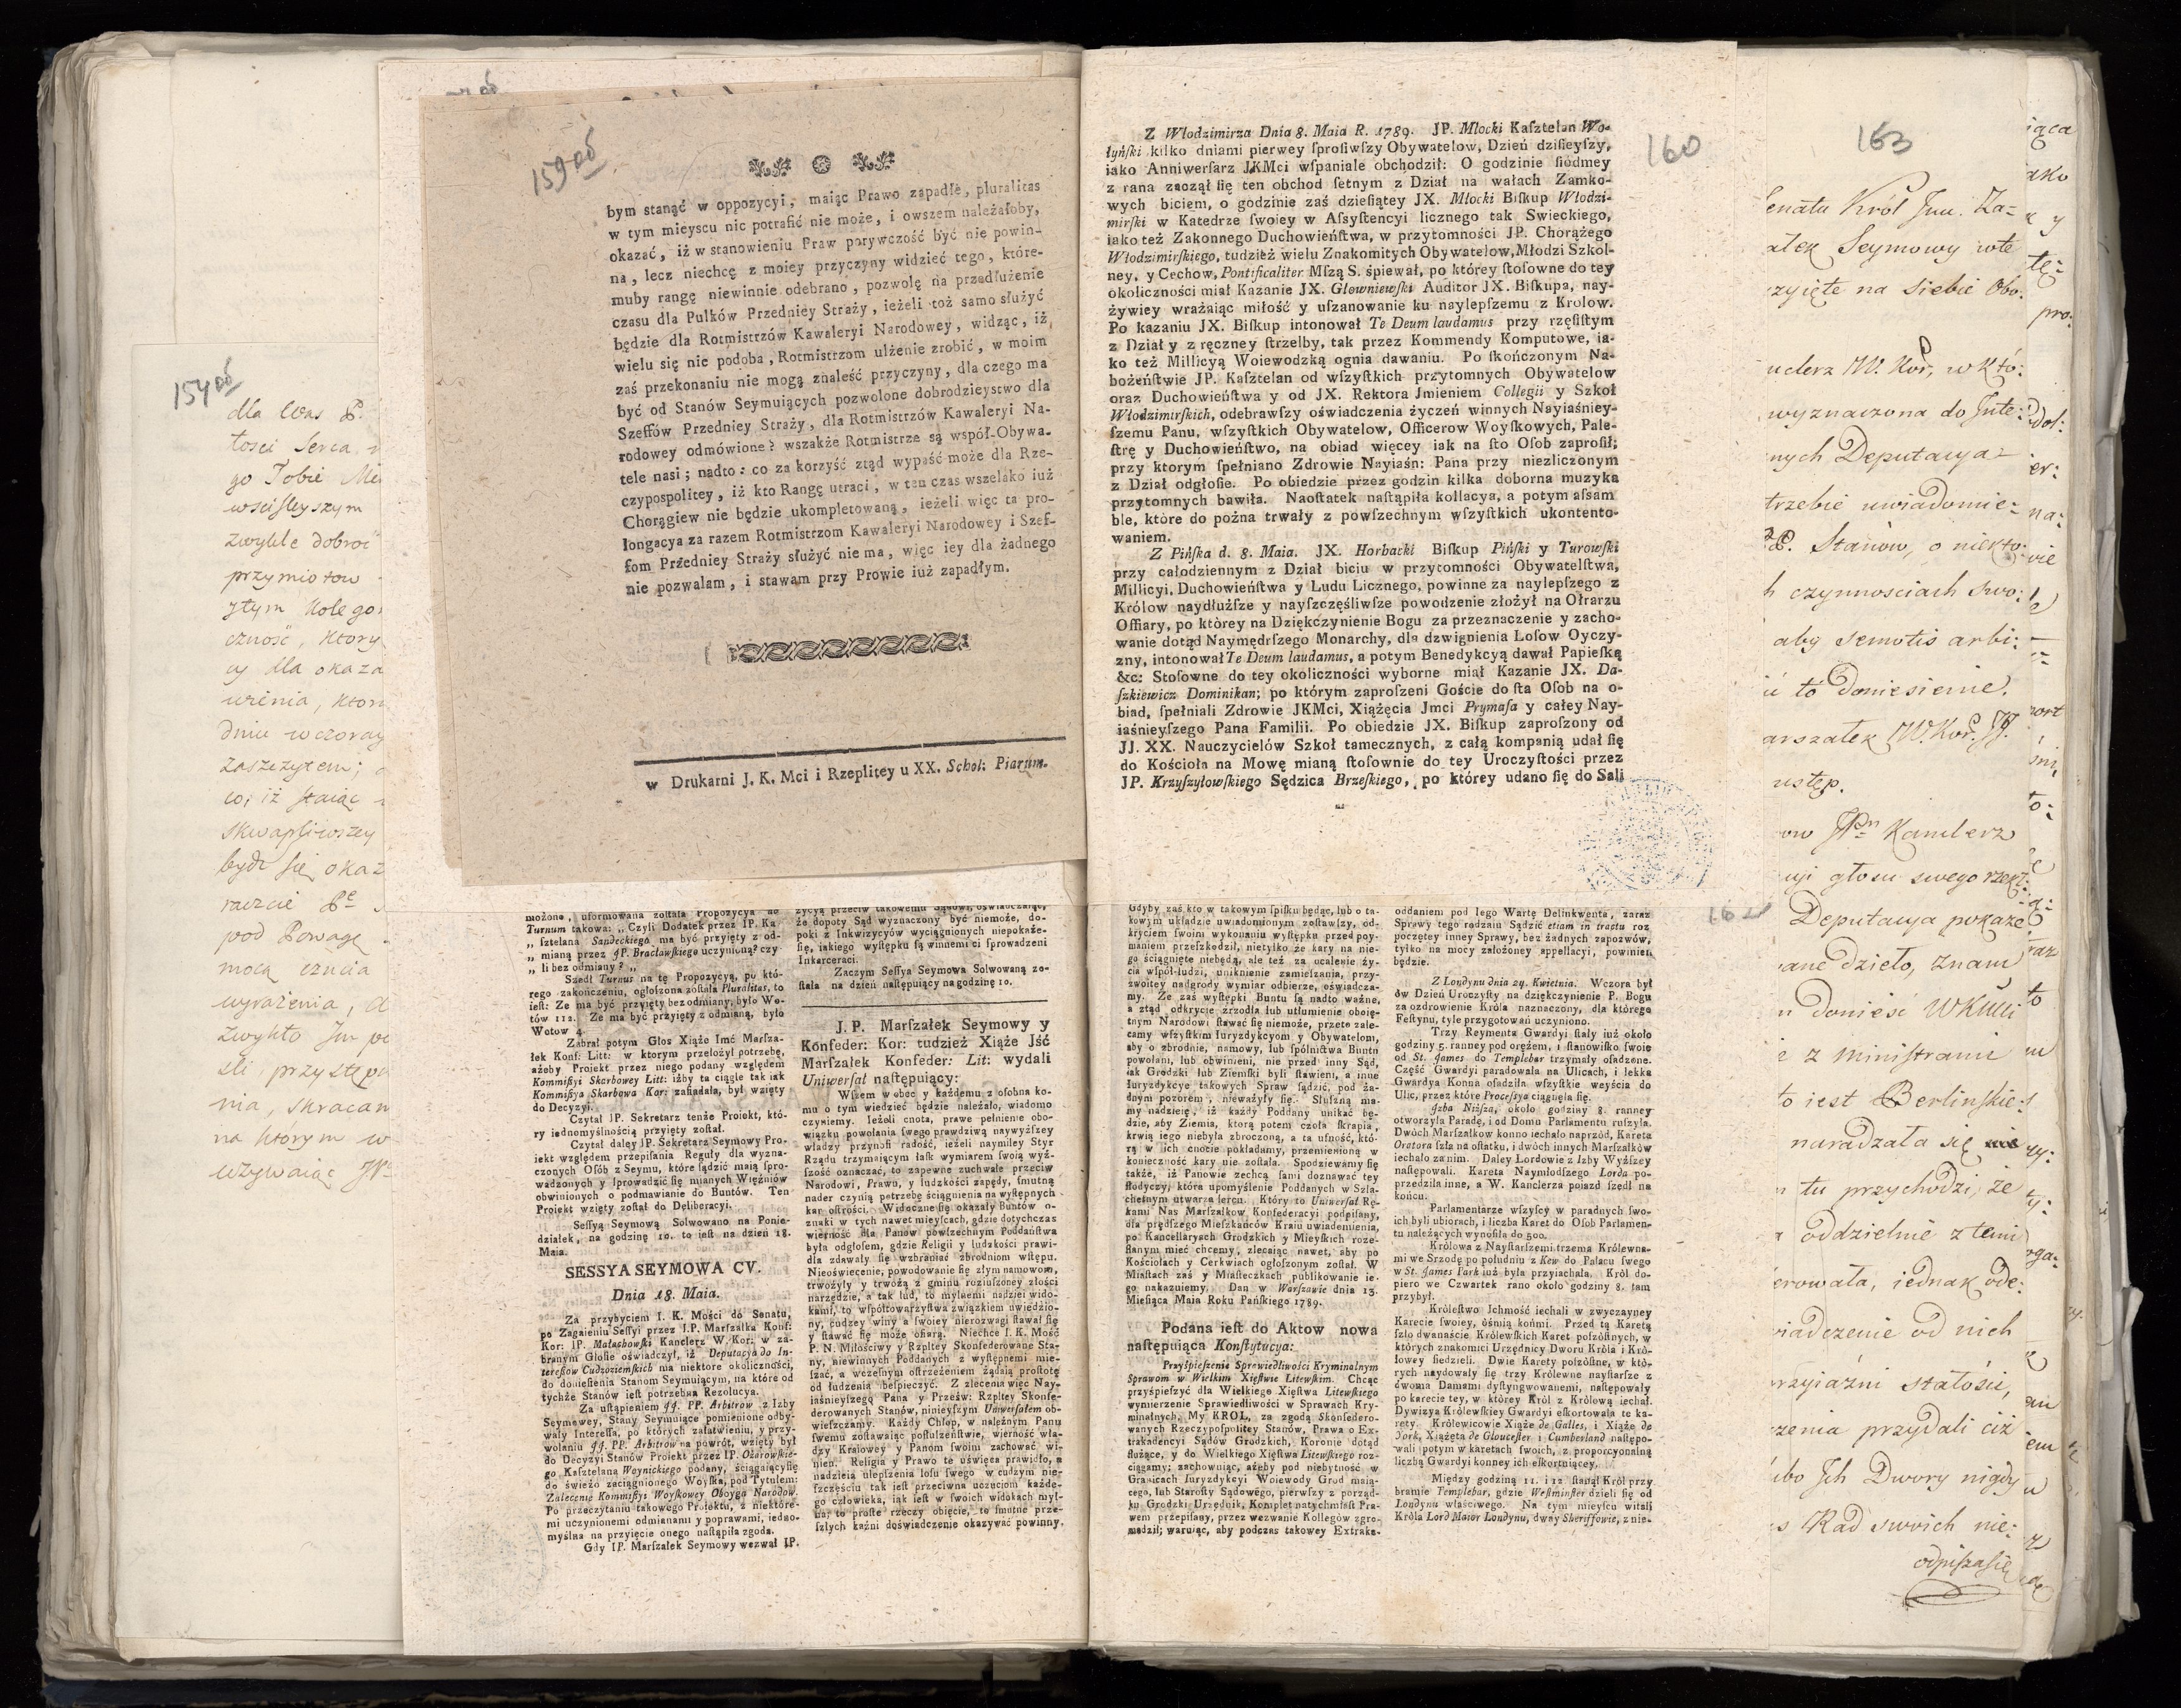 159 об
bym stanąć w oppozycyi, maiąc Prawo zapadłe, pluralitas
w tym mieyscu nic potrafić nie może, i owszem należałoby,
okazać, iż w stanowieniu Praw porywczość być nie powin-
na, lecz niechcę z moiey przyczyny widzieć tego, które-
muby rangę niewinnie odebrano, pozwolę na przedłużenie
czasu dla Pulków Przedniey Straży, ieżeli toż samo służyć
będzie dla Rotmistrzów Kawaleryi Narodowey, widząc, iż
wielu się nic podoba, Rotmistrzom ulżenie zrobić, w moim
zaś przekonaniu nie mogą znaleść przyczyny, dla czego ma
być od Stanów Seymuiących pozwolone dobrodzieystwo dla
Szeffów Przedniey Straży, dla Rotmistrzów Kawaleryi Na-
rodowey odmówione? wszakże Rotmistrze są współ-Obywa-
tele nasi; nadto: co za korzyść ztąd wypaść może dla Rze-
czypospolitey, iż kto Rangę utraci, w ten czas wszelako iuż
Chorągiew nie będzie ukompletowaną, ieżeli więc ta pro-
longacya za razem Rotmistrzom Kawaleryi Narodowey i Szef-
fom Przedniey Straży służyć nie ma, więc iey dla żadnego
nie pozwalam, i stawam przy Prowie iuż zapadłym.
w Drukarni J. K. Mci i Rzeplitey u XX. Schol: Piarum.
154 об
dla Was P.
tości Serca
go Tobie
wściśleyszym
zwykłe dobroć
przymiotow
ztym Kolego
czność, ktory
cy dla okaza
urżenia, ktor
dniu wczoray
zaszczyżem;
co; iż staiąc
skwapliwszey
bydź się okaz
raczcie
pod Powagę
mocą czucia
wyrażenia,
zwykło
sli przystępu
nia, skracam
na którym w
używaiąc
160
Z Włodzimirza Dnia 8. Maia R. 1789. JP. Młocki Kaſztelan Wo-
łyńſki kilko dniami pierwey ſproſiwſzy Obywatelow, Dzień dziſieyſzy,
iako Anniwerſarz JKMci wſpaniale obchodził: O godzinie ſiódmey
z rana zaczął ſię ten obchod ſetnym z Dział na wałach Zamko-
wych biciem, o godzinie zaś dzieſiątey JX. Młocki Biſkup Włodzi-
mirſki w Katedrze ſwoiey w Aſsyſtencyi licznego tak Swieckiego,
iako też Zakonnego Duchowieńſtwa, w przytomności JP. Chorążego
Włodzimirſkiego, tudzież wielu Znakomitych Obywatelow, Młodzi Szkol-
ney, y Cechow, Pontificaliter Mſzą S. śpiewał, po którey ſtoſowne do tey
okoliczności miał Kazanie JX. Głowniewſki Auditor JX. Biſkupa, nay-
żywiey wrażaiąc miłość y uſzanowanie ku naylepſzemu z Krolow.
Po kazaniu JX. Biſkup intonował Te Deum laudamus przy rzęſiſtym
z Dział y z ręczney ſtrzelby, tak przez Kommendy Komputowe, ia-
ko też Millicyą Woiewodzką ognia dawaniu. Po ſkończonym Na-
bożeńſtwie JP. Kaſztelan od wſzyſtkich przytomnych Obywatelow
oraz Duchowieńſtwa y od JX. Rektora Jmieniem Collegii y Szkoł
Włodzimirſkich, odebrawſzy oświadczenia życzeń winnych Nayiaśniey-
ſzemu Panu, wſzyſtkich Obywatelow, Officerow Woyſkowych, Pale-
ſtrę y Duchowieńſtwo, na obiad więcey iak na ſto Oſob zaproſił;
przy ktorym ſpełniano Zdrowie Nayiaśn: Pana przy niezliczonym
z Dział odgłoſie. Po obiedzie przez godzin kilka doborna muzyka
przytomnych bawiła. Naoſtatek naſtąpiła kollacya, a potym aſsam
ble, które do pożna trwały z powſzechnym wſzyſtkich ukontento-
waniem.
Z Pińſka d. 8. Maia. JX. Horbacki Biſkup Pińſki y Turowſki
przy całodziennym z Dział biciu w przytomności Obywatelſtwa,
Millicyi, Duchowieńſtwa y Ludu Licznego, powinne za naylepſzego z
Królow naydłużſze y nayſzczęśliwſze powodzenie złożył na Ołrarzu
Offiary, po którey na Dziękczynienie Bogu za przeznaczenie y zacho-
wanie dotąd Naymędrſzego Monarchy, dla dzwignienia Loſow Oyczy-
zny, intonował Te Deum laudamus, a potym Benedykcyą dawał Papieſką
&c: Stoſowne do tey okoliczności wyborne miał Kazanie JX. Da-
ſzkiewicz Dominikan; po którym zaproſzeni Goście do ſta Oſob na o-
biad, ſpełniali Zdrowie JKMci, Xiążęcia Jmci Prymaſa y całey Nay-
iaśnieyſzego Pana Familii. Po obiedzie JX. Biſkup zaproſzony od
JJ. XX. Nauczycielów Szkoł tamecznych, z całą kompanią udał ſię
do Kościoła na Mowę mianą ſtoſownie do tey Uroczyſtości przez
JP. Krzyſzyłowſkiego Sędzica Brzeſkiego, po którey udano ſię do Sali
możone, uformowana zoſtała Propozycya ad
Turnum takowa: „Czyli Dodatek przez IP. Ka
„ſztelana Sandeckiego ma być przyięty z od-
„mianą przez JP. Bracławſkiego uczynioną? czy
„li bez odmiany?„
Szedł Turnus na tę Propozycyą, po któ-
rego zakończeniu, ogłoſzona zoſtała Pluralitas, to
ieſt: Ze ma być przyięty bez odmiany, było Wo-
tów 112. Ze ma być przyięty z odmianą, było
Wotow 4.
Zabrał potym Głos Xiąże Imć Marſza-
łek Konf: Litt: w ktorym przełożył potrzebę,
ażeby Proiekt przez niego podany względem
Kommiſſyi Skarbowey Litt: iżby ta ciągle tak iak
Kommiſſya Skarbowa Kor: zaſiadała, był wzięty
do Decyzyi.
Czytał JP. Sekretarz tenże Proiekt, któ-
ry iednomyſlnością przyięty zoſtał.
Czytał daley JP. Sekretarz Seymowy Pro-
iekt względem przepiſania Reguły dla wyzna-
czonych Oſób z Seymu, które ſądzić maią ſpro-
wadzonych y ſprowadzić ſię mianych Więźniów
obwinionych o podmawianie do Buntów. Ten
Proiekt wzięty zoſtał do Deliberacyi.
Seſſyą Seymową Solwowano na Ponie-
działek, na godzinę 10. to ieſt na dzień 18.
Maia.
SESSYA SEYMOWA CV.
Dnia 18. Maia.
Za przybyciem I. K. Mości do Senatu,
po Zagaieniu Seſſyi przez I.P. Marſzałka Konf:
Kor: IP. Małachowſki Kanclerz W. Kor: w za-
branym Głoſie oświadczył, iż Deputacya do In-
tereſſow Cudzoziemſkich ma niektore okoliczności,
do donieſienia Stanom Seymuiącym, na które od
tychże Stanów ieſt potrzebna Rezolucya.
Za uſtąpieniem JJ. PP. Arbitrow z Izby
Seymowey, Stany Seymuiące pomienione odby-
wały Intereſſa, po których załatwieniu, y przy-
wołaniu JJ. PP. Arbitrow na powrót, wzięty był
do Decyzyi Stanów Proiekt przez IP. Ożarowſkie-
go Kaſztelana Woynickiego podany, ściągaiący ſię
do świeżo zaciągnionego Woyſka, pod Tytułem:
Zalecenie Kommiſſyi Woyſkowey Oboyga Narodow.
Po przeczytaniu takowego Proiektu, z niektóre-
mi uczynionemi odmianami y poprawami, iedno-
myślna na przyięcie onego naſtąpiła zgoda.
Gdy IP. Marſzałek Seymowy wezwał IP.
zycyą przeciw takowemu Sądowi, oświadczaiąc,
że dopoty Sąd wyznaczony być niemoże, do-
poki z Inkwizycyów wyciągnionych niepokaże-
ſię, iakiego występku ſą winnemi ci ſprowadzeni
Inkarceraci.
Zaczym Seſſya Seymowa Solwowaną zo-
ſtała na dzień naſtępuiący na godzinę 10.
J. P. Marſzałek Seymowy y
Konfeder: Kor: tudzież Xiąże Jść
Marſzałek Konfeder: Lit: wydali
Uniwerſał naſtępuiący:
Wſzem w obec y każdemu z oſobna ko-
mu o tym wiedzieć będzie należało, wiadomo
czyniemy. Ieżeli cnota, prawe pełnienie obo-
wiązku powołania ſwego prawdziwą naywyżſzey
władzy przynoſi radość, ieżeli naymiley Styr
Rządu trzymaiącym łaſk wymiarem ſwoią wyż-
ſzość oznaczać, to zapewne zuchwałe przeciw
Narodowi, Prawu, y ludzkości zapędy, ſmutną
nader czynią potrzebę ściągnienia na wyſtępnych
kar oſtrości. Widoczne ſię okazały Buntów o-
znaki w tych nawet mieyſcach, gdzie dotychczas
wierność dla Panów powſzechnym Poddańſtwa
była odgłoſem, gdzie Religii y ludzkości prawi-
dła zdawały ſię wzbraniać zbrodniom wſtępu.
Nieoświecenie, powodowanie ſię złym namowom,
trwożyły y trwożą z gminu roziuſzoney złości
narzędzie, a tak lud, to mylnemi nadziei wido-
kami, to wſpółtowarzyſtwa związkiem uwiedzio-
ny, cudzey winy a ſwoiey nierozwagi ſtawał ſię
y ſtawać ſię może ofiarą. Niechce I. K. Mość
P. N. Miłościwy y Rzpltey Skonfederowane Sta-
ny, niewinnych Poddanych z występnemi mie-
ſzać, a wczeſnym oſtrzeżeniem żądaią proſtotę
od łudzenia beſpieczyć. Z zlecenia więc Nay-
iaśnieyſzego Pana y Prześw: Rzpltey Skonfe-
derowanych Stanów, ninieyſzym Uniwerſałem ob-
wieſzczamy. Każdy Chłop, w należnym Panu
ſwemu zoſtawaiąc poſłuſzeńſtwie, wierność wła-
dzy Kraiowey y Panom ſwoim zachować wi-
nien. Religia y Prawo te uświęca prawidło, a
nadzieia ulepſzenia loſu ſwego w cudzym nie-
ſzczęściu tak ieſt przeciwna uczuciom każde-
go człowieka, iak ieſt w ſwoich widokach myl-
na; to proſte rzeczy obięcie, to ſmutne prze-
ſzłych kaźni doświadczenie okazywać powinny.
Gdyby zaś kto w takowym ſpiſku będąc, lub o ta-
kowym układzie uwiadomionym zoſtawſzy, od-
kryciem ſwoim wykonaniu wyſtępku przed poy-
maniem przeſzkodził, nietylko że kary na nie-
go ściągnięte niebędą, ale też za ocalenie ży-
cia wſpół-ludzi, uniknienie zamieſzania, przy-
zwoitey nadgrody wymiar odbierze, oświadcza-
my. Że zaś wyſtępki Buntu ſą nadto ważne,
a ztąd odkrycie zrzodła lub utłumienie oboię-
tnym Narodowi ſtawać ſię niemoże, przeto zale-
camy wſzyſtkim Iuryzdykcyom y Obywatelom,
aby o zbrodnie, namowy, lub ſpólnictwa Buntu
powołani, lub obwinieni, nie przed inny Sąd,
iak Grodzki lub Ziemſki byli ſtawieni, a inne
Iuryzdykcye takowych Spraw ſądzić, pod ża-
dnym pozorem, nieważyły ſię. Słuſzną ma-
my nadzieię, iż każdy Poddany unikać bę-
dzie, aby Ziemia, którą potem czoła ſkrapia,
krwią iego niebyła zbroczoną, a ta ufność, któ-
rą w ich cnocie pokładamy, przemienioną w
konieczność kary nie zoſtała. Spodziewamy ſię
także, iż Panowie zechcą ſami doznawać tey
ſłodyczy, która upomyślenie Poddanych w Szla-
chetnym utwarza ſercu. Który to Uniwerſał Rę-
kami Nas Marſzałkow Konfederacyi podpiſany,
dla prędſzego Mieſzkańców Kraiu uwiadomienia,
po Kancellaryach Grodzkich y Mieyſkich roze-
ſłanym mieć chcemy, zlecaiąc nawet, aby po
Kościołach y Cerkwiach ogłoſzonym zoſtał. W
Miaſtach zaś y Miaſteczkach publikowanie ie-
go nakazuiemy. Dan w Warſzawie dnia 13.
Mieſiąca Maia Roku Pańſkiego 1789.
Podana ieſt do Aktow nowa
naſtępuiąca Konſtytucya:
Przyſpieſzenie Sprawiedliwości Kryminalnym
Sprawom w Wielkim Xięſtwie Litewſkim. Chcąc
przyśpieſzyć dla Wielkiego Xięſtwa Litewſkiego
wymierzenie Sprawiedliwości w Sprawach Kry-
minalnych, My KROL, za zgodą Skonfedero-
wanych Rzeczypoſpolitey Stanów, Prawa o Ex-
trakadencyi Sądów Grodzkich, Koronie dotąd
ſłużące, y do Wielkiego Xięſtwa Litewſkiego roz-
ciągamy; zachowuiąc, ażeby pod niebytność w
Granicach Iuryzdykcyi Woiewody Grod maią-
cego, lub Staroſty Sądowego, pierwſzy z porząd-
ku Grodzki Urzędnik, Komplet natychmiaſt Pra-
wem przepiſany, przez wezwanie Kollegów zgro-
madził; waruiąc, aby podczas takowey Extraka-
162
oddaniem pod Iego Wartę Delinkwenta, zaraz
Sprawy tego rodzaiu Sądzić etiam in tractu roz
poczętey inney Sprawy, bez żadnych zapozwów,
tylko na mocy założoney appellacyi, powinien
będzie.
Z Londynu dnia 24. Kwietnia. Wczora był
ów Dzień Uroczyſty na dziękczynienie P. Bogu
za ozdrowienie Króla naznaczony, dla którego
Feſtynu, tyle przygotowań uczyniono.
Trzy Reymenta Gwardyi ſtały iuż około
godziny 5. ranney pod orężem, i ſtanowiſko ſwoie
od St. James do Templebar trzymały oſadzone.
Część Gwardyi paradowała na Ulicach, i lekka
Gwardya Konna oſadziła wſzyſtkie weyścia do
Ulic, przez które Proceſſya ciągnęła ſię.
Jzba Niżſza, około godziny 8. ranney
otworzyła Paradę, i od Domu Parlamentu ruſzyła.
Dwóch Marſzałkow konno iechało naprzód, Kareta
Oratora ſzła na oſtatku, i dwóch innych Marſzałków
iechało za nim. Daley Lordowie z Izby Wyżſzey
naſtępowali. Kareta Naymłodſzego Lorda po-
przedziła inne, a W. Kanclerza poiazd ſzedł na
końcu.
Parlamentarze wſzyſcy w paradnych ſwo-
ich byli ubiorach, i liczba Karet do Oſob Parlamen-
tu należących wynoſiła do 500.
Królowa z Nayſtarſzemi trzema Królewna-
mi we Srzodę po południu z Kew do Pałacu ſwego
w St. James Park iuż była przyiachała. Król do-
piero we Czwartek rano około godziny 8. tam
przybył.
Króleſtwo Ichmość iechali w zwyczayney
Karecie ſwoiey, ośmią końmi. Przed tą Karetą
ſzło dwanaście Królewſkich Karet poſzóſtnych, w
których znakomici Urzędnicy Dworu Króla i Kró-
lowey ſiedzieli. Dwie Karety poſzóſtne, w któ-
rych naydowały ſię trzy Królewne nayſtarſze z
dwoma Damami dyſtyngwowanemi, naſtępowały
po karecie tey, w którey Król z Królową iechał.
Dywizya Królewſkiey Gwardyi eſkortowała te ka-
rety. Królewicowie Xiąże de Galles, i Xiąże de
York, Xiążęta de Glouceſter i Cumberland naſtępo-
wali potym w karetach ſwoich, z proporcyonalną
liczbą Gwardyi konney ich eſkortuiącey.
Między godziną 11. i 12 ſtanął Król przy
bramie Templebar, gdzie Weſtminſter dzieli ſię od
Londynu właściwego. Na tym mieyſcu witali
Króla Lord Maior Londynu, dwáy Sheriffowie, z nie-
163
Senatu Król Jmc. Za=
ałek Seymowy wte
rzyięte na Siebie Obo:
nclerz W. Kor, w któ:
wyznaczona do Inte:
nych Deputacya=
trzebie uwiadomie=
P. Stanow, o niekto:
h czynnościach swo:
aby semotis arbi:
ić to doniesienie.
arszałek W Kor.
ustęp.
Kanclerz
głosu swego rzekł:
Deputacya pokaże
ane dzieło, znam
donieść WKMci
z ministrami
to iest Berlinskie:
naradzała się
tu przychodzi, że
oddzielnie z temi
erowała, iednak ode:
iadczenie od nich
rzyiaźni stałości,
zenia przydali ciż
lbo Ich Dwory nigdy
s Rad swoich nie:
odpisza się